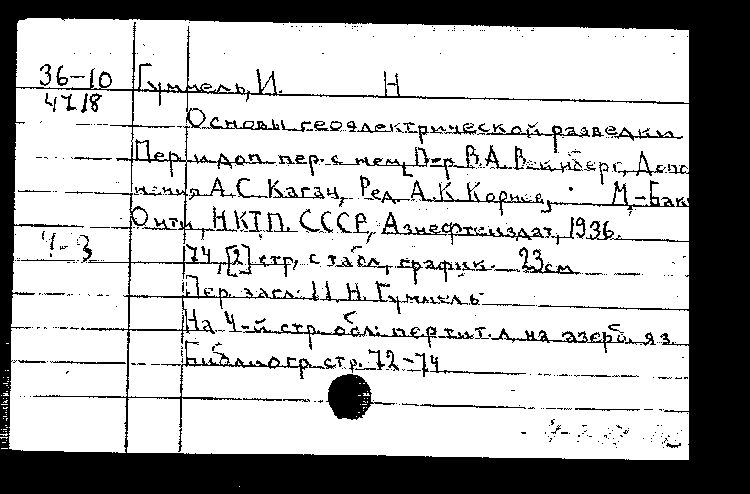 36-10 Гуммель, И. Н
4718
Основы геоэлектрической разведки
Пер. и доп. пер. с нем. Пер. В.А. Вейнберг, Допо
нения А.С. Каган, Ред. А.К. Корнев, М.-Бак
Онти, НКТП. СССР, Азнефтеиздат, 1936.
Ч-3
74, [2] стр, с табл, график. 23см
Пер. загл: И. Н. Гуммель
На 4-й стр. обл: пер тит. л. на азерб. яз.
Библиогр стр. 72-74.